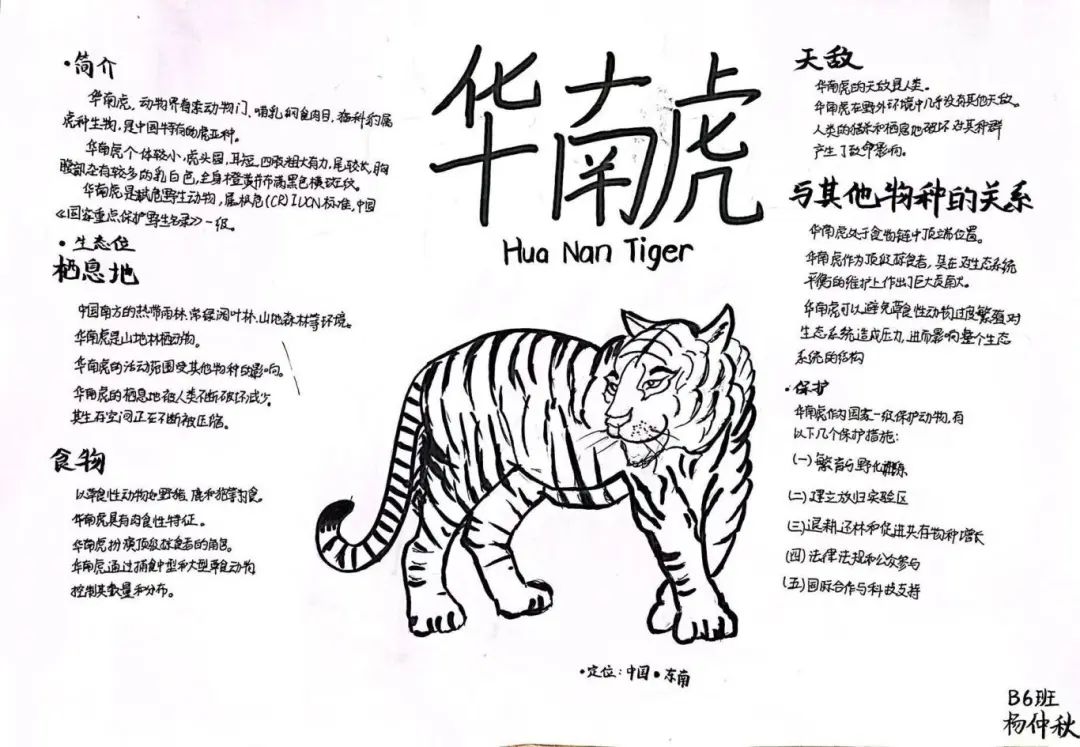 华南虎
Hua Nan Tiger
•简介
华南虎，动物界脊索动物门、哺乳纲食肉目，猫科豹属
虎种生物，是中国特有的虎亚种。
华南虎个体较小，虎头圆，耳短，四肢粗大有力，尾较长，胸
腹部杂有较多的乳白色，全身橙黄并布满黑色横斑纹。
华南虎是濒危野生动物，属极危(CR)IUCN标准，中国
《国家重点保护野生名录》一级。
•生态位
栖息地
中国南方的热带雨林、常绿阔叶林、山地森林等环境。
华南虎是山地林栖动物。
华南虎的活动范围受其他物种的影响。
华南虎的栖息地被人类不断破坏减少。
其生存空间正在不断被压缩。
食物
以草食性动物如野猪、鹿和狍等为食。
华南虎具有肉食性特征。
华南虎扮演顶级掠食者的角色。
华南虎通过捕食中型和大型草食动物
控制其数量和分布。
天敌
华南虎的天敌是人类。
华南虎在野外环境中几乎没有其他天敌。
人类的猎杀和栖息地破坏对其种群
产生了致命影响。
与其他物种的关系
华南虎处于食物链中顶端位置。
华南虎作为顶级掠食者，其在对生态系统
平衡的维护上作出了巨大贡献。
华南虎可以避免草食性动物过度繁殖对
生态系统造成压力，进而影响整个生态
系统的结构
•保护
华南虎作为国家一级保护动物，有
以下几个保护措施：
(一)繁育与野化训练
(二)建立放归实验区
(三)退耕还林和促进共存物种增长
(四)法律法规和公众参与
(五)国际合作与科技支持
•定位：中国•东南
B6班
杨仲秋